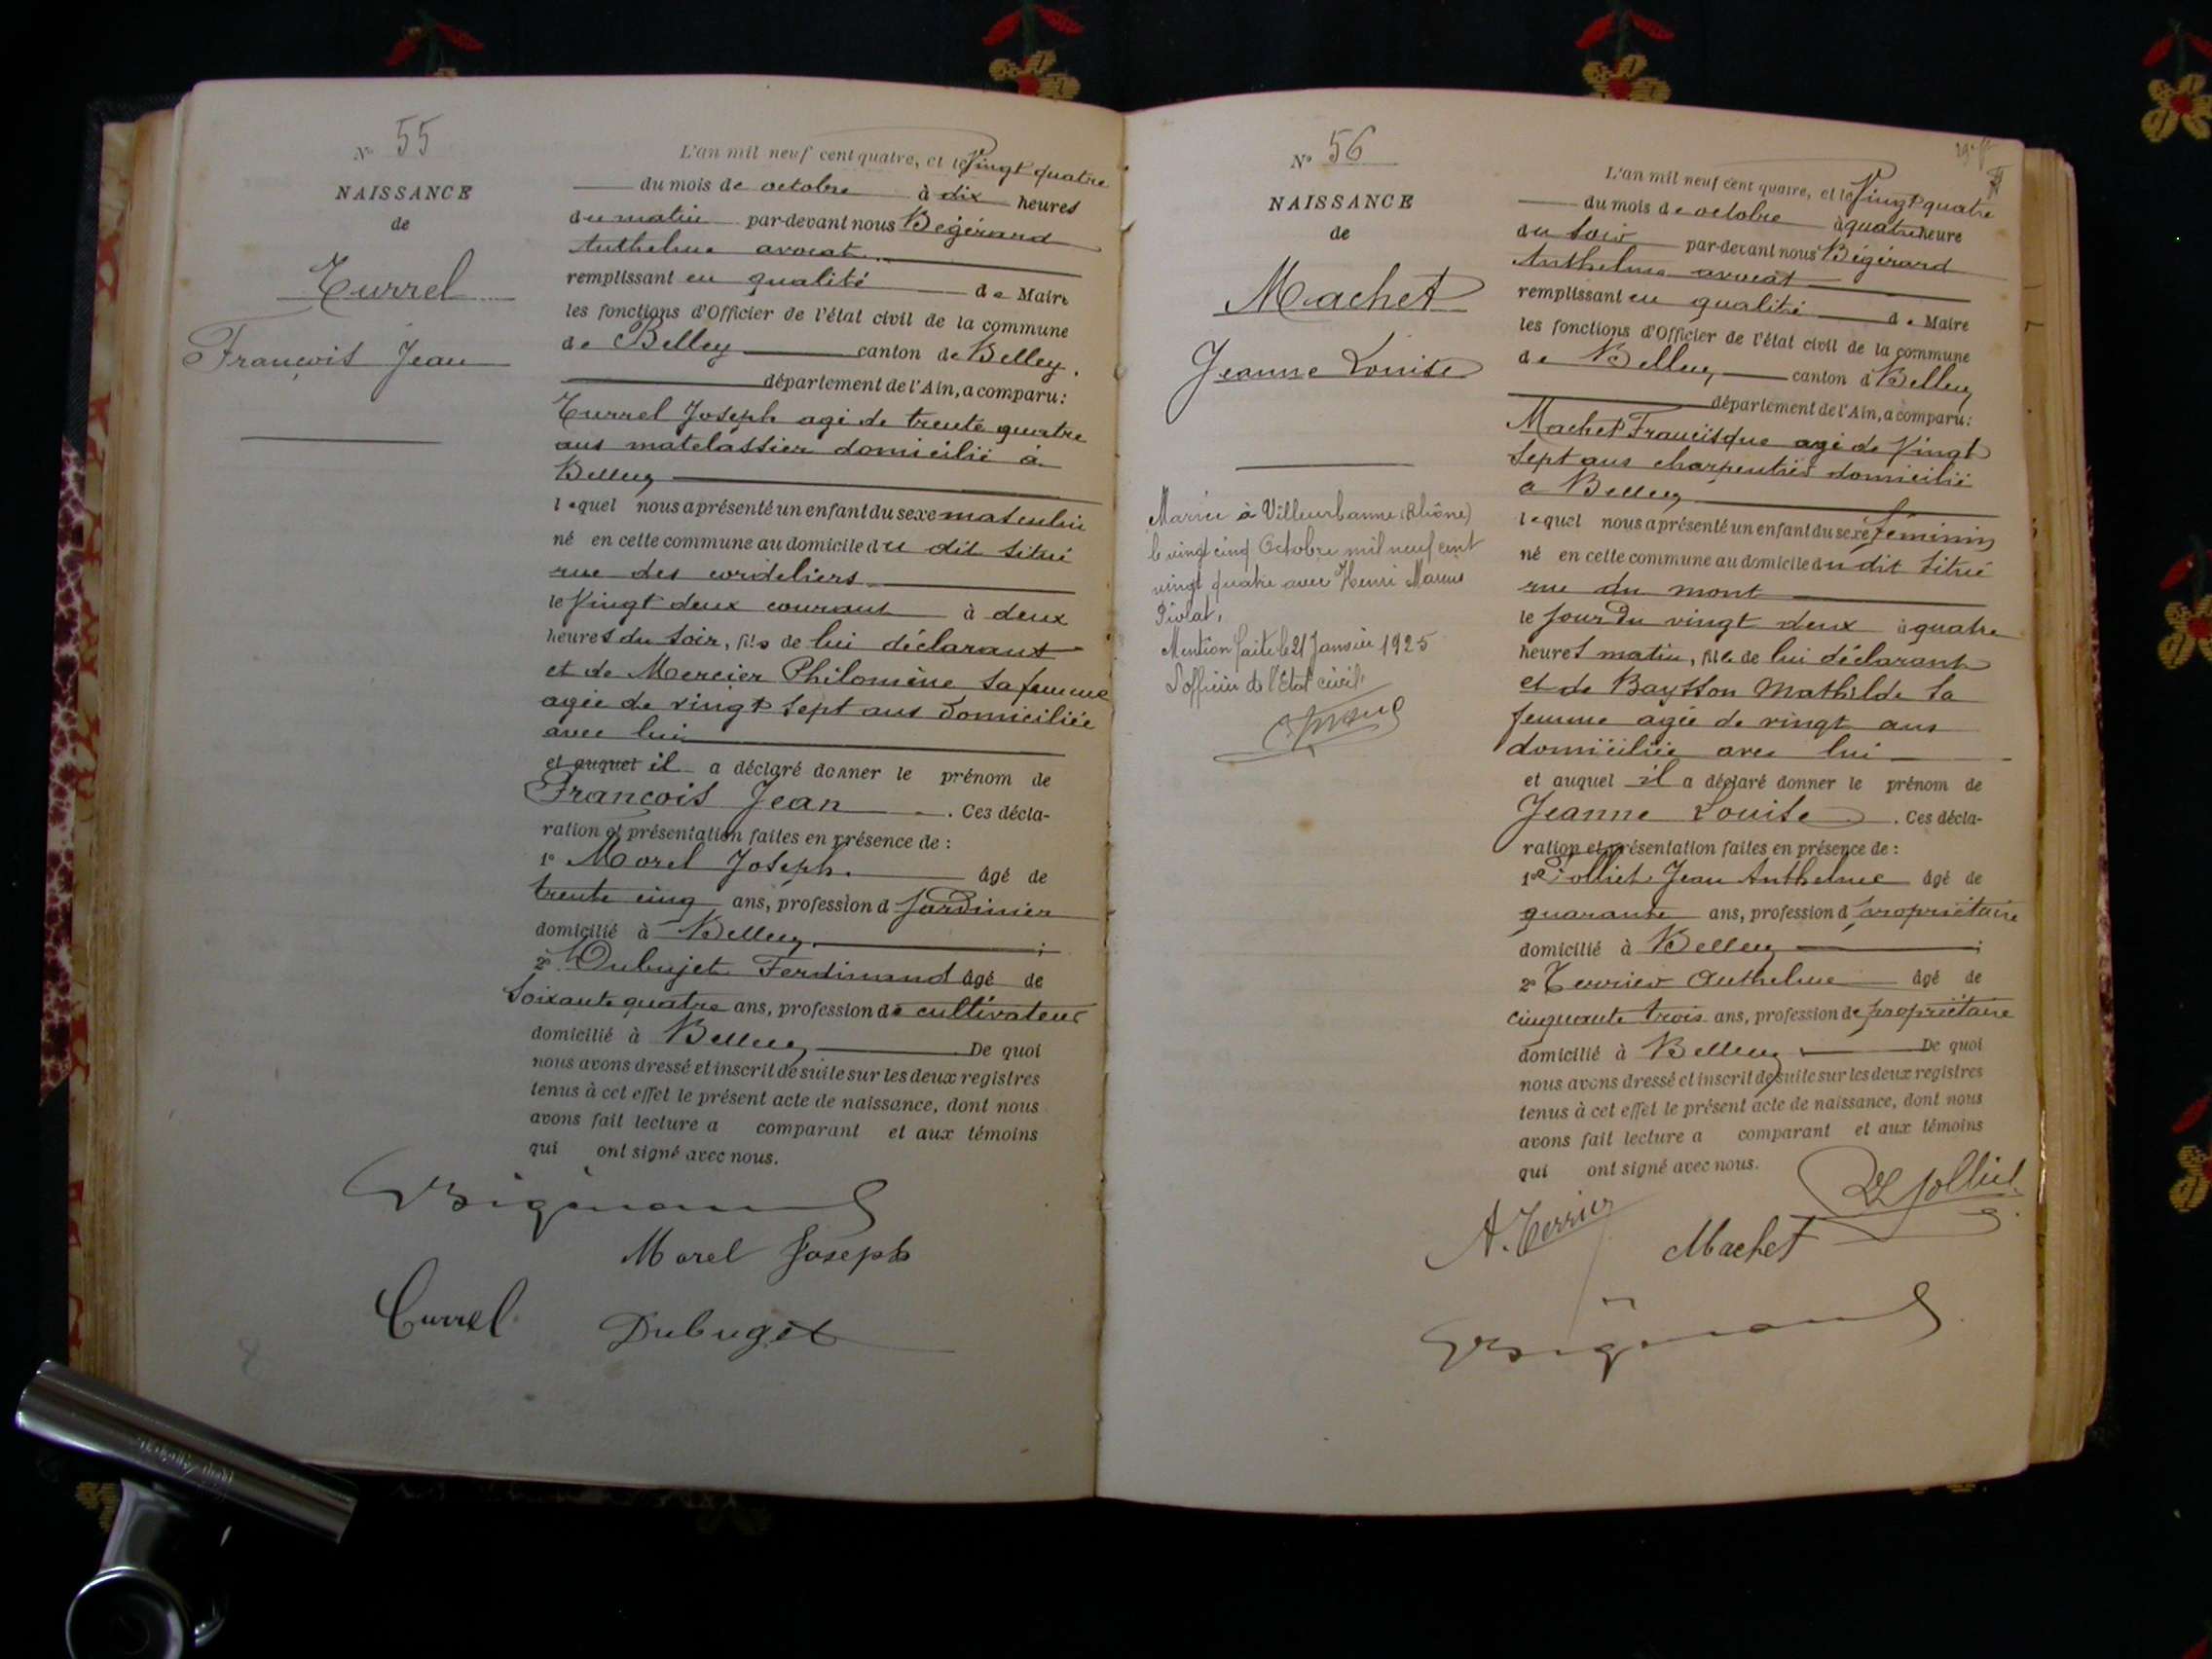 N° 55
NAISSANCE
de
Turrel
François Jean
L'an mil neuf cent quatre, et le Vingt quatre
du mois de octobre à dix heures
du matin par-devant nous Bégérard
Anthelme avocat
remplissant en qualité de Maire
les fonctions d'Officier de l'état civil de la commune
de Belley canton de Belley.
département de l'Ain, a comparu:
Turrel Joseph agé de trente quatre
ans matelassier domicilié à
Belley
lequel nous a présenté un enfant du sexe masculin
né en cette commune au domicile du dit situé
rue des cordeliers
le Vingt deux courant à deux
heures du soir, fils de lui déclarant
et de Mercier Philomène sa femme
agée de vingt sept ans domiciliée
avec lui
et auquel il a déclaré donner le prénom de
François Jean. Ces décla-
ration et présentation faites en présence de :
1° Morel Joseph. âgé de
trente cinq ans, profession d Jardinier
domicilié à Belley ;
2° Dubujet Ferdinand âgé de
soixante quatre ans, profession de cultivateur
domicilié à Belley De quoi
nous avons dressé et inscrit de suite sur les deux registres
tenus à cet effet le présent acte de naissance, dont nous
avons fait lecture a comparant et aux témoins
qui ont signé avec nous.
Morel Joseph
Turrel Dubuget
N° 56
NAISSANCE
de
Machet
Jeanne Louise
Mariée à Villeurbanne (Rhône)
le vingt cinq Octobre mil neuf cent
vingt quatre avec Henri Marius
Piolat,
Mention faite le 21 Janvier 1925
L'officier de l'Etat civil,
L'an mil neuf cent quatre, et le Vingt quatre
du mois de octobre à quatre heure
du soir par-devant nous Bégérard
Anthelme avocat
remplissant en qualité de Maire
les fonctions d'Officier de l'état civil de la commune
de Belley, canton d Belley
département de l'Ain, a comparu:
Machet Francisque agé de Vingt
sept ans charpentier domicilié
a Belley
lequel nous a présenté un enfant du sexe féminin
né en cette commune au domicile du dit situé
rue du mont
le jour du vingt deux à quatre
heures matin, fille de lui déclarant
et de Baysson Mathilde sa
femme agée de vingt ans
domiciliée avec lui
et auquel il a déclaré donner le prénom de
Jeanne Louise. Ces décla-
ration et présentation faites en présence de :
1° Jolliet Jean Anthelme âgé de
quarante ans, profession d propriétaire
domicilié à Belley ;
2° Terrier Anthelme âgé de
cinquante trois ans, profession de propriétaire
domicilié à Belley De quoi
nous avons dressé et inscrit de suite sur les deux registres
tenus à cet effet le présent acte de naissance, dont nous
avons fait lecture a comparant et aux témoins
qui ont signé avec nous.
Jolliet
A. Terrier
Machet